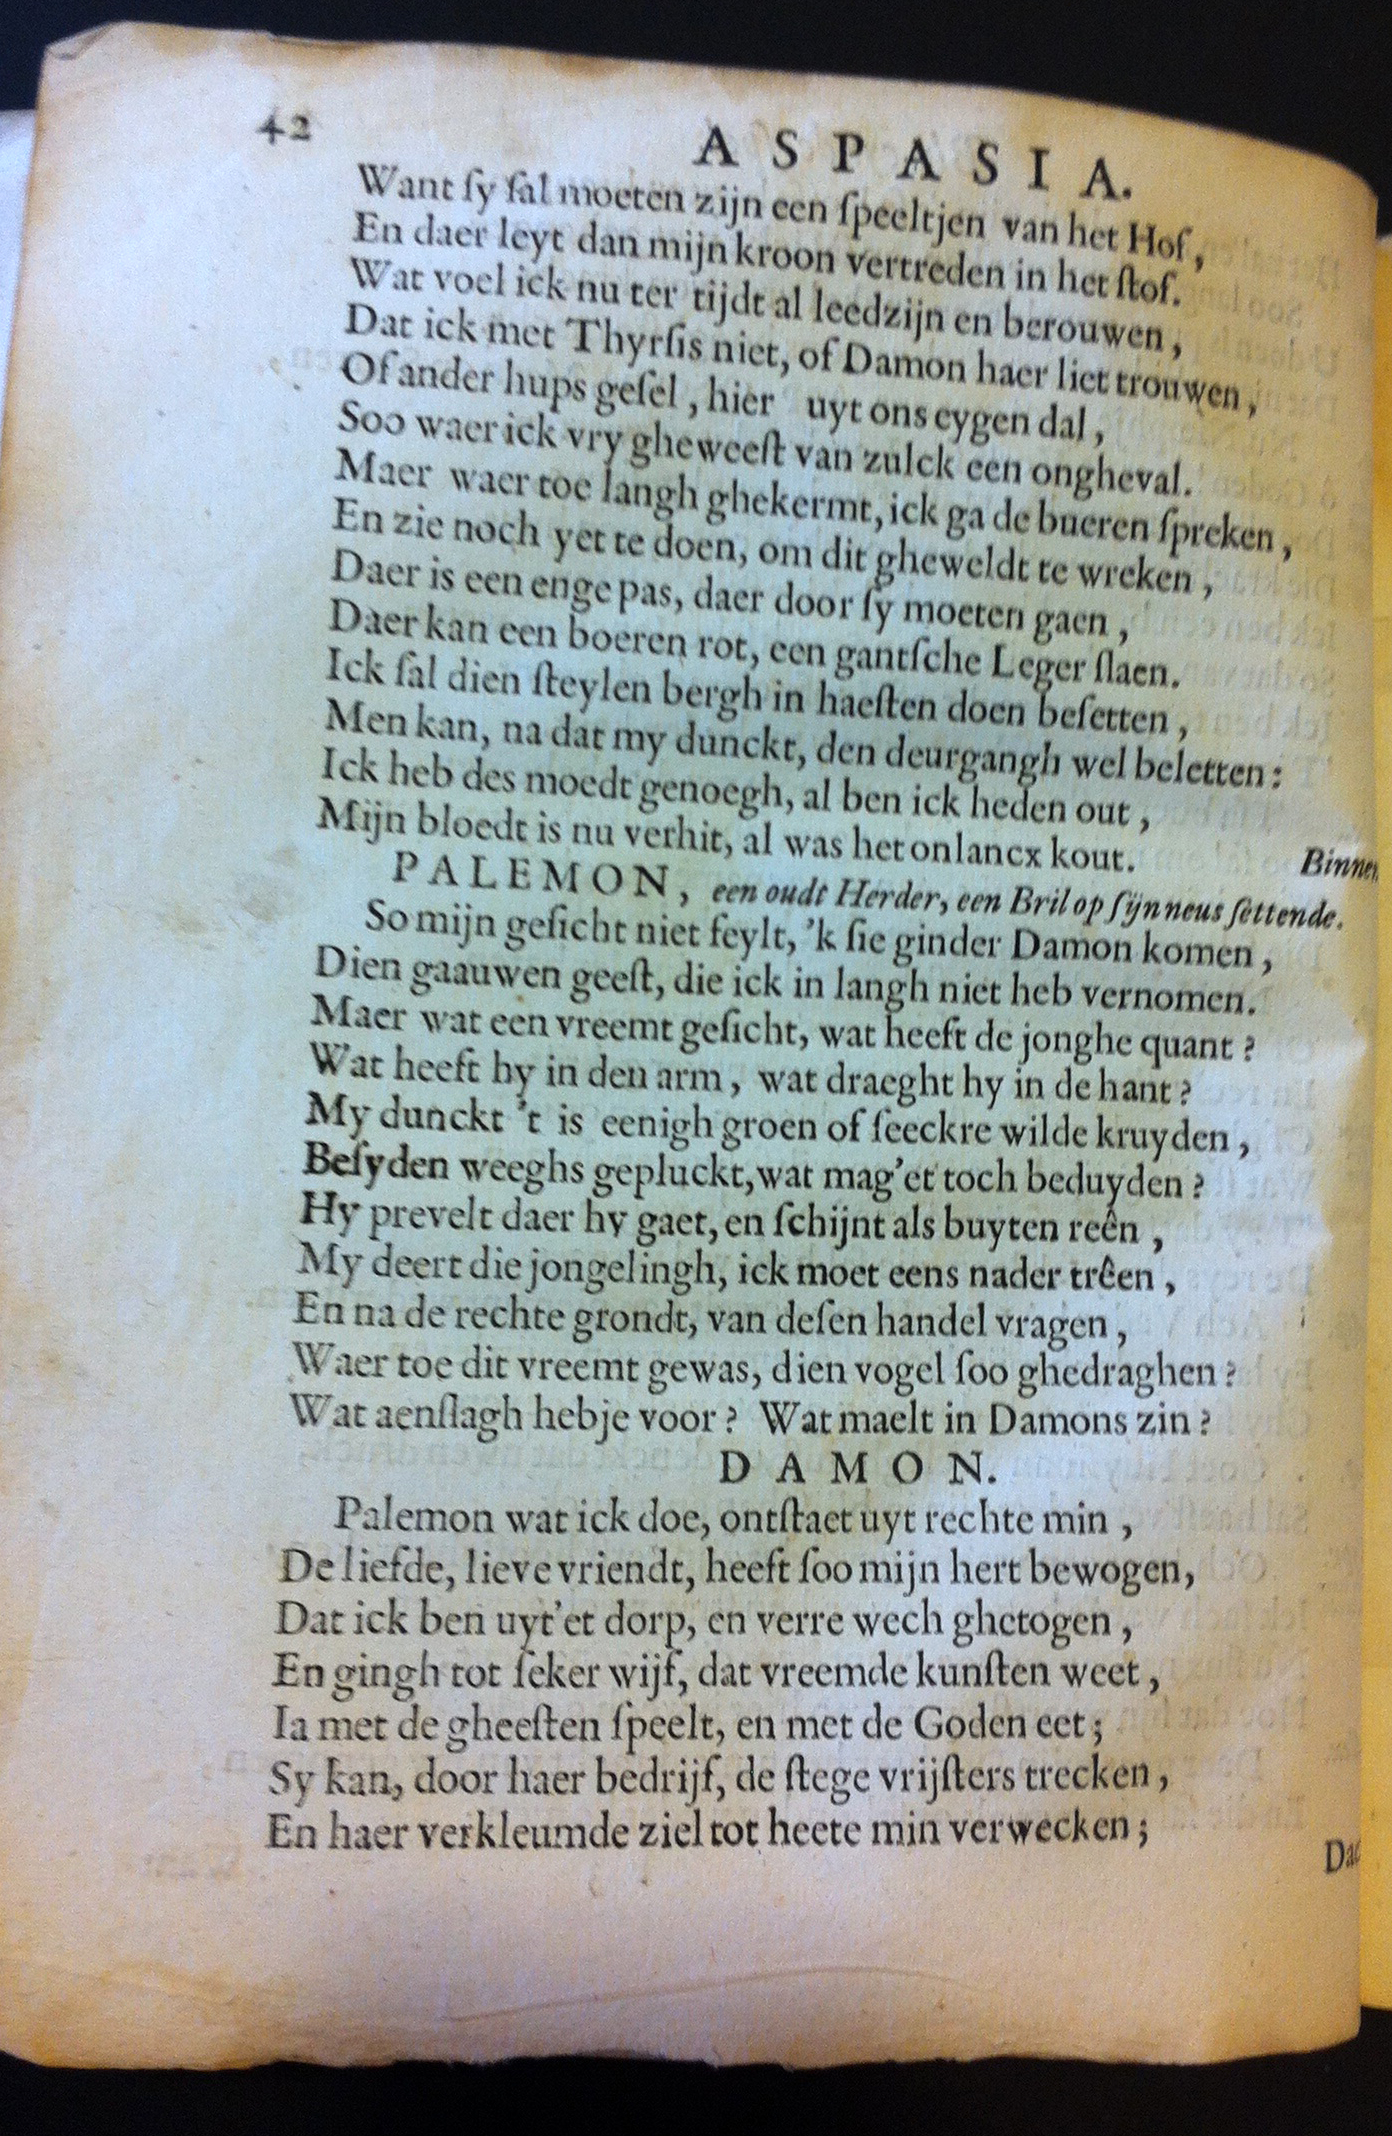 42
ASPASIA.
Want ſy ſal moeten zijn een ſpeeltjen van het Hof,
En daer leyt dan mijn kroon vertreden in het ſtof.
Wat voel ick nu ter tijdt al leedzijn en berouwen,
Dat ick met Thyrſis niet, of Damon haer liet trouwen,
Of ander hups geſel, hier uyt ons eygen dal,
Soo waer ick vry gheweeſt van zulck een ongheval.
Maer waer toe langh ghekermt, ick ga de bueren ſpreken,
En zie noch yet te doen, om dit gheweldt te wreken,
Daer is een enge pas, daer door ſy moeten gaen,
Daer kan een boeren rot, een gantſche Leger ſlaen.
Ick ſal dien ſteylen bergh in haeſten doen beſetten,
Men kan, na dat my dunckt, den deurgangh wel beletten:
Ick heb des moedt genoegh, al ben ick heden out,
Mijn bloedt is nu verhit, al was het onlancx kout.
Binnen
PALEMON, een oudt Herder, een Bril op ſijn neus ſettende.
So mijn geſicht niet feylt, 'k ſie ginder Damon komen,
Dien gaauwen geeſt, die ick in langh niet heb vernomen.
Maer wat een vreemt geſicht, wat heeft de jonghe quant?
Wat heeft hy in den arm, wat draeght hy in de hant?
My dunckt 't is eenigh groen of ſeeckre wilde kruyden,
Beſyden weeghs gepluckt, wat mag'et toch beduyden?
Hy prevelt daer hy gaet, en ſchijnt als buyten reên,
My deert die jongelingh, ick moet eens nader trêen,
En na de rechte grondt, van deſen handel vragen,
Waer toe dit vreemt gewas, dien vogel ſoo ghedraghen?
Wat aenſlagh hebje voor? Wat maelt in Damons zin?
DAMON.
Palemon wat ick doe, ontſtaet uyt rechte min,
De liefde, lieve vriendt, heeft ſoo mijn hert bewogen,
Dat ick ben uyt'et dorp, en verre wech ghetogen,
En gingh tot ſeker wijf, dat vreemde kunſten weet,
Ia met de gheeſten ſpeelt, en met de Goden eet;
Sy kan, door haer bedrijf, de ſtege vrijſters trecken,
En haer verkleumde ziel tot heete min verwecken;